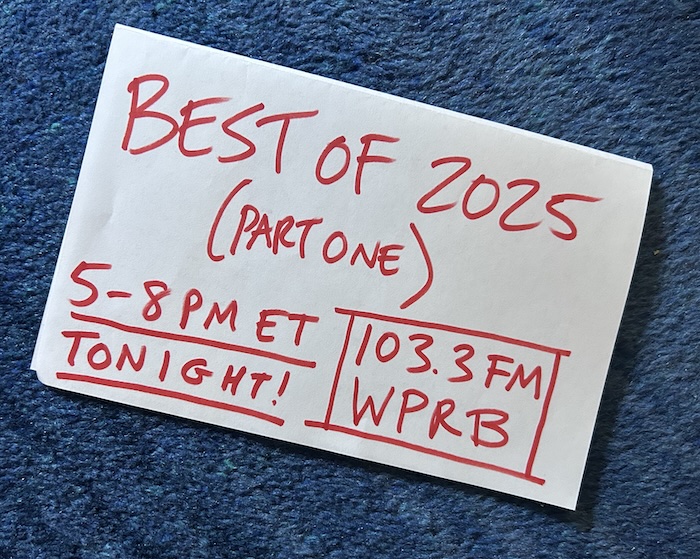 BEST OF 2025
(PART ONE)
5-8 PM ET
TONIGHT!
103.3 FM
WPRB